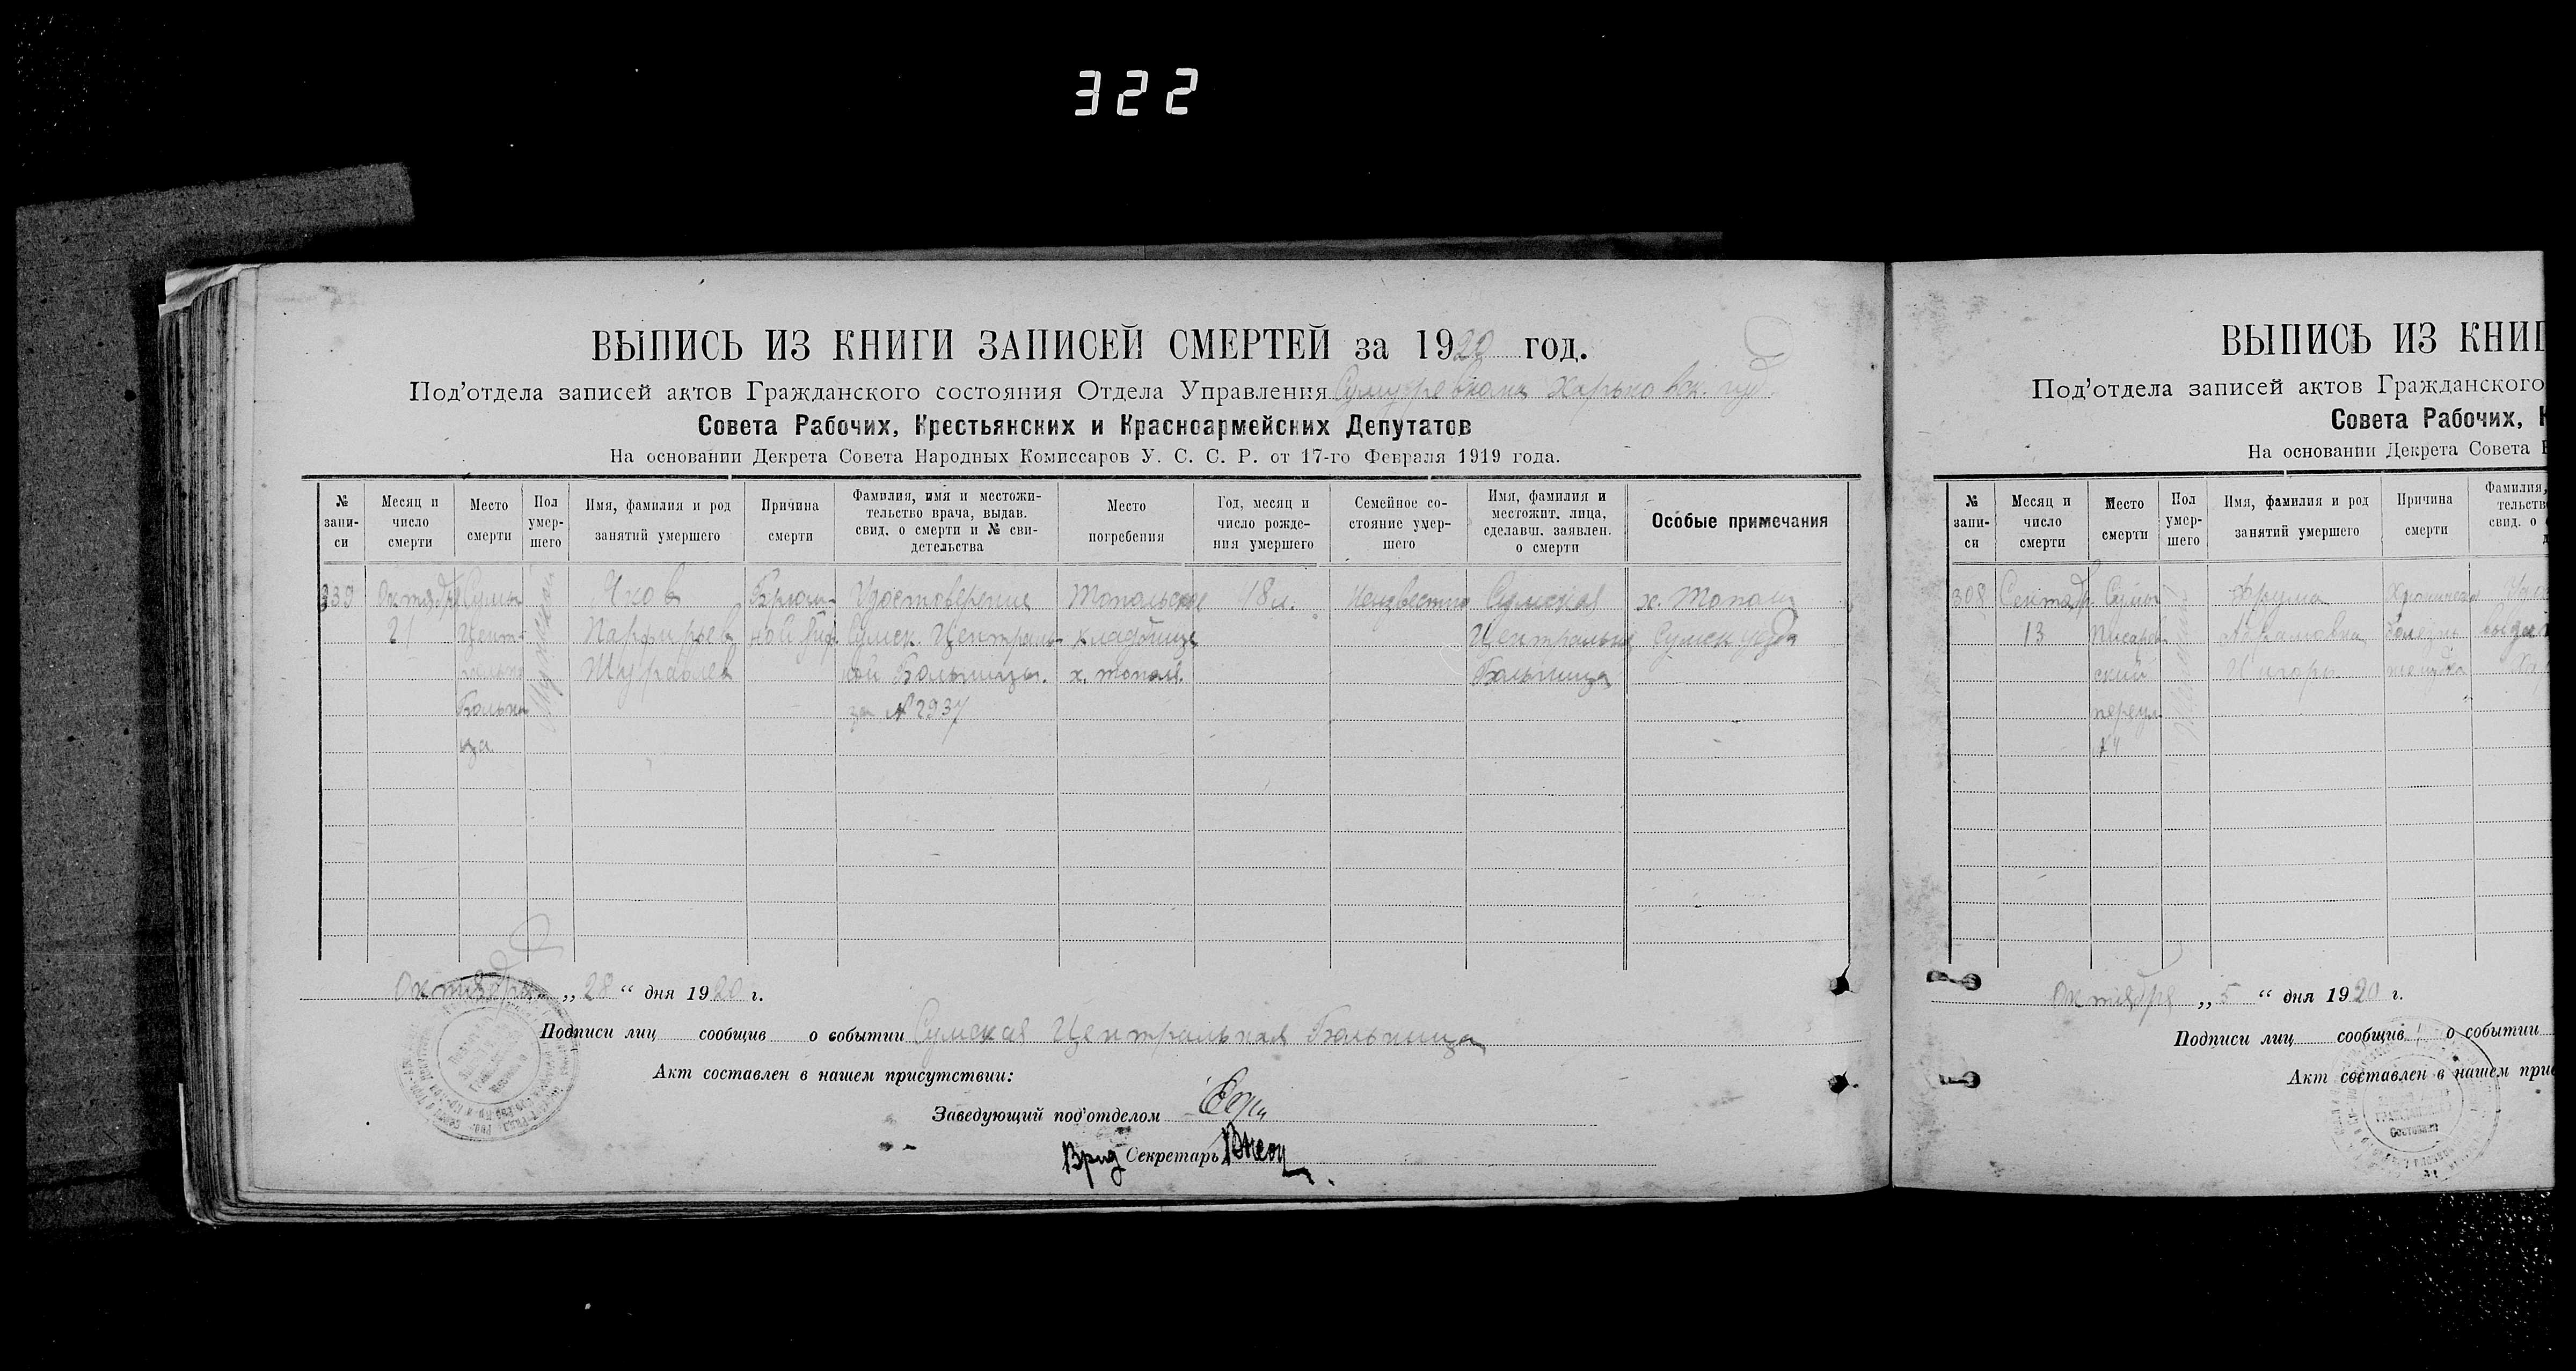 322
ВЫПИСЬ ИЗ КНИГИ ЗАПИСЕЙ СМЕРТЕЙ за 1920 год.
Под'отдела записей актов Гражданского состояния Отдела Управления Харьковск. губ.
Совета Рабочих, Крестьянских и Красноармейских Депутатов
На основании Декрета Совета Народных Комиссаров У. С. С. Р. от 17-го Февраля 1919 года.
№ запи-си
Месяц и число смерти
Место смерти
Пол умер-шего
Имя, фамилия и род занятий умершего
Причина смерти
Фамилия, имя и местожи-тельство врача, выдав. свид. о смерти и № сви-детельства
Место погребения
Год, месяц и число рожде-ния умершего
Семейное со-стояние умер-шего
Имя, фамилия и местожит. лица, сделавш. заявлен. о смерти
Особые примечания
339 Октября Сумы Яков Брюш- Удостоверение Топольское 48 л. Неизвестно Сумская х. Тополи
21 Цент- ной тиф Сумск. Централь- кладбище Центральная Сумск уезда
Журавлев ной Больницы. х. Тополи Больница
Больни за № 2937
ца
Октября „ 28 “ дня 1920 г.
Подписи лиц сообщив о событии Сумская Центральная Больница
Акт составлен в нашем присутствии:
Заведующий под'отделом
Врид Секретарь
ВЫПИСЬ ИЗ КНИГ
Под'отдела записей актов Гражданского
Совета Рабочих, К
На основании Декрета Совета
№ запи-си
Месяц и число смерти
Место смерти
Пол умер-шего
Имя, фамилия и род занятий умершего
Причина смерти
Фамилия, тельств свид. о
308 Сентябр Сумы Фрума
13 Абрамовна болезнь
ский желудка
переул.
Октября „ 5 “ дня 1920 г.
Подписи лиц сообщив о событии
Акт составлен в нашем при